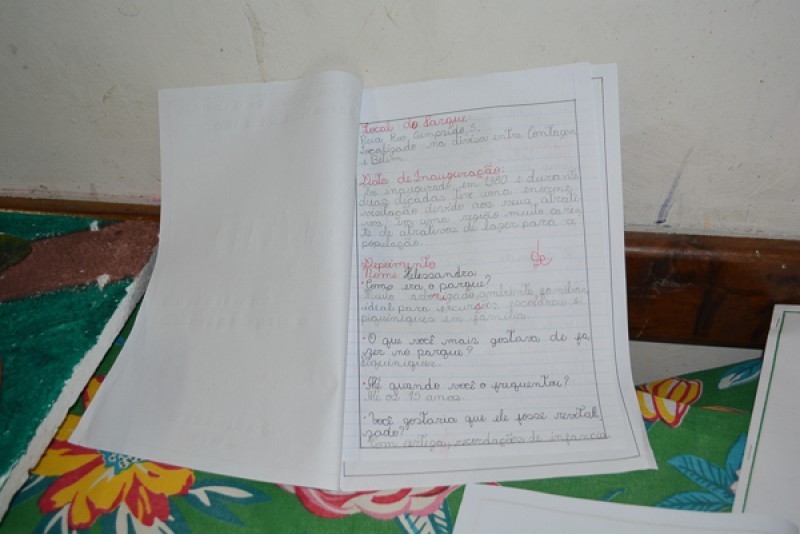 Local do Parque
Rua Rio Comprido, S.
Localizado na divisa entre Contagem
e Betim.
Data de Inauguração:
Foi inaugurado em 1980 e durante
duas décadas teve uma enorme
visitação devido aos seus atrati-
vos. Em uma região muito caren-
te de atrativos de lazer para a
população.
Depoimento
Nome Alessandra.
• Como era o parque?
arborizado, ambiente familiar
ideal para escolares e
piqueniques em família.
• O que você mais gostava de fa
zer no parque?
Piqueniques.
• Até quando você o frequentou?
Até os 15 anos.
• Você gostaria que ele fosse revitali
zado?
Com certeza, recordações de infância